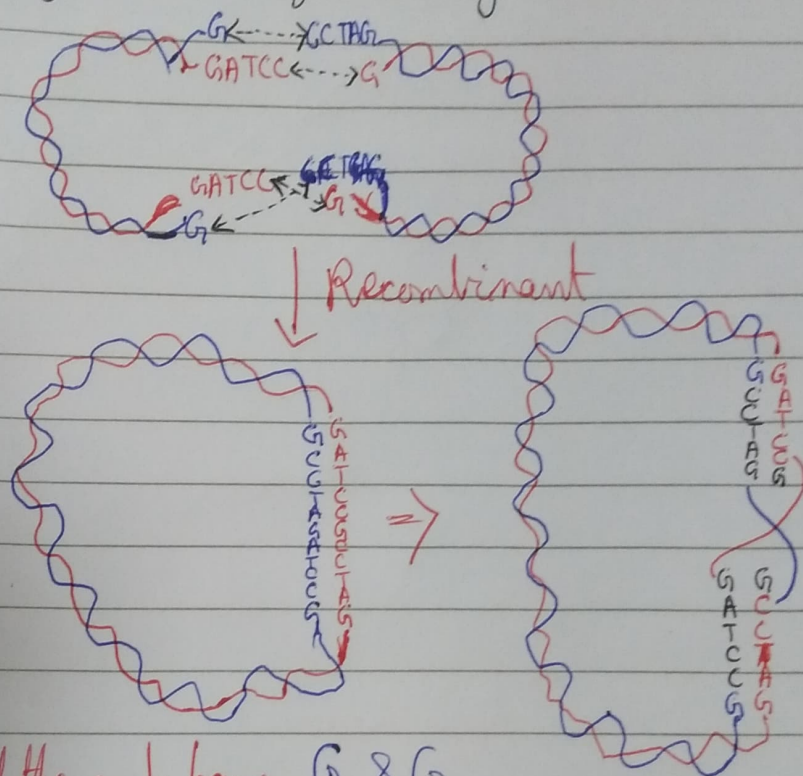 G GCTAG
GATCC G
GATCC
G
G
Recombinant
GCCTAGATCCG
GATCCGCCTAG
GCCTAG
GATCCG
GATCCG
GCCTAG
G & G